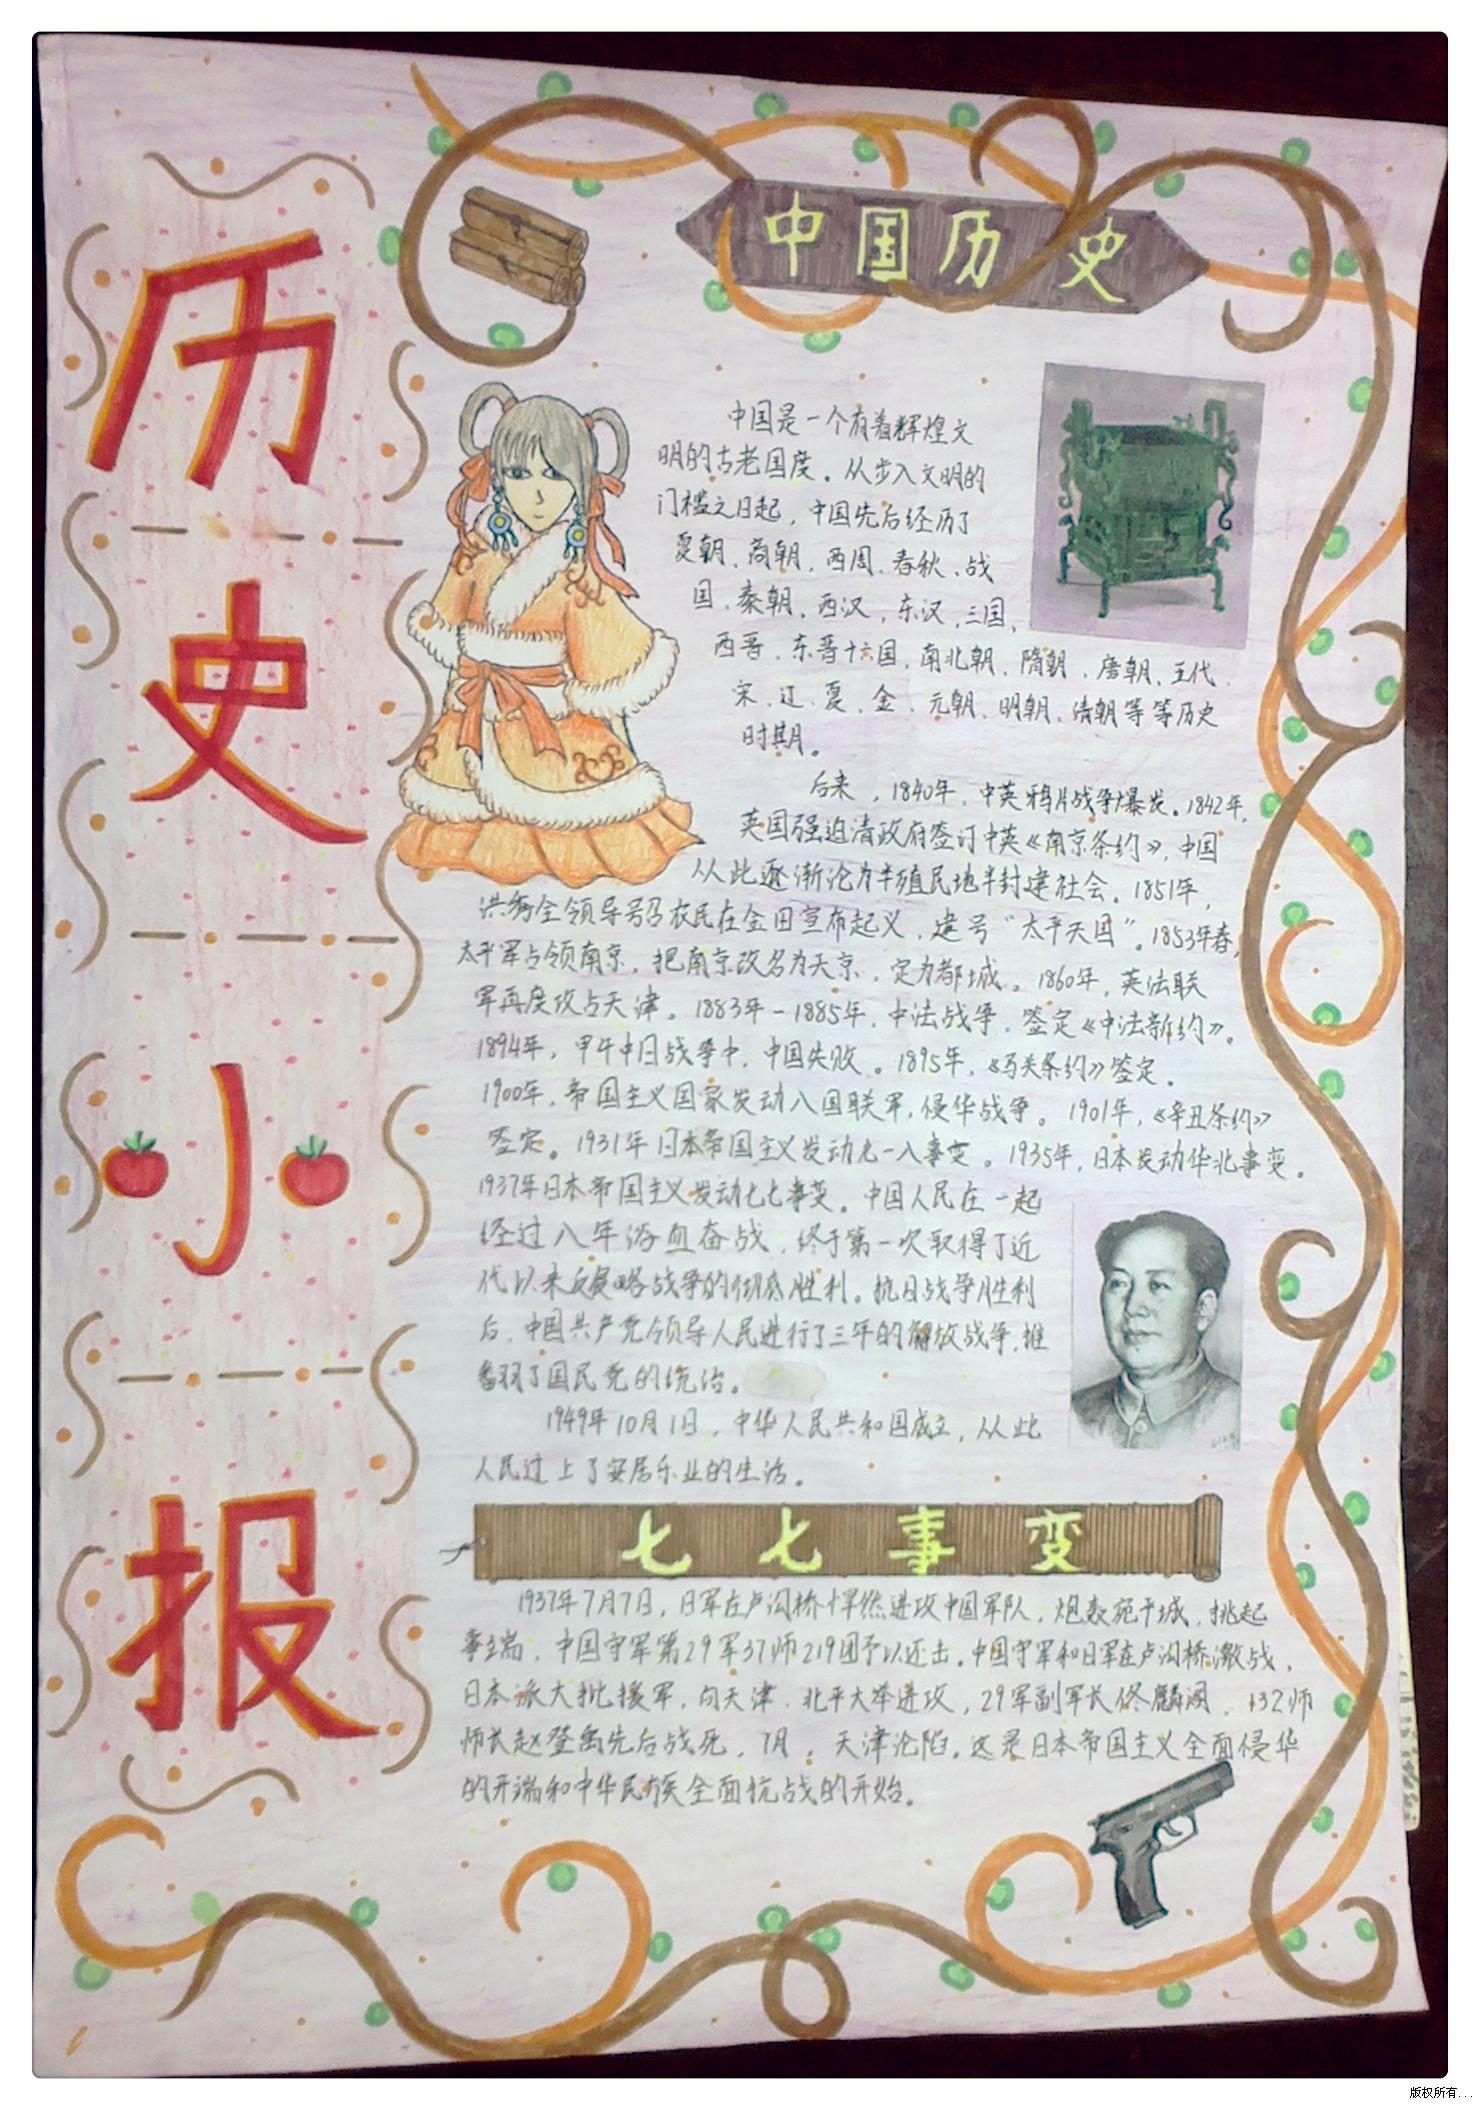 历
史
小
报
中国历史
中国是一个有着辉煌文
明的古老国度。从步入文明的
门槛之日起，中国先后经历了
夏朝、商朝、西周、春秋、战
国、秦朝、西汉，东汉，三国，
西晋、东晋十六国、南北朝、隋朝、唐朝、五代、
宋、辽、夏、金、元朝、明朝、清朝等等历史
时期。
后来，1840年，中英鸦片战争爆发。1842年，
英国强迫清政府签订中英《南京条约》，中国
从此逐渐沦为半殖民地半封建社会。1851年，
洪秀全领导号召农民在金田宣布起义，建号“太平天国”。1853年春，
太平军占领南京，把南京改名为天京，定为都城。1860年，英法联
军再度攻占天津。1883年-1885年，中法战争，签定《中法新约》。
1894年，甲午中日战争中，中国失败。1895年，《马关条约》签定。
1900年，帝国主义国家发动八国联军，侵华战争。1901年，《辛丑条约》
签定。1931年日本帝国主义发动九一八事变。1935年，日本发动华北事变。
1937年日本帝国主义发动七七事变。中国人民在一起
经过八年浴血奋战，终于第一次取得了近
代以来反侵略战争的彻底胜利。抗日战争胜利
后，中国共产党领导人民进行了三年的解放战争，推
翻了国民党的统治。
1949年10月1日，中华人民共和国成立，从此
人民过上了安居乐业的生活。
七七事变
1937年7月7日，日军在卢沟桥悍然进攻中国军队，炮轰宛平城，挑起
事端，中国守军第29军37师219团予以还击。中国守军和日军在卢沟桥激战，
日本派大批援军，向天津、北平大举进攻，29军副军长佟麟阁、132师
师长赵登禹先后战死，7月，天津沦陷。这是日本帝国主义全面侵华
的开端和中华民族全面抗战的开始。
版权所有...